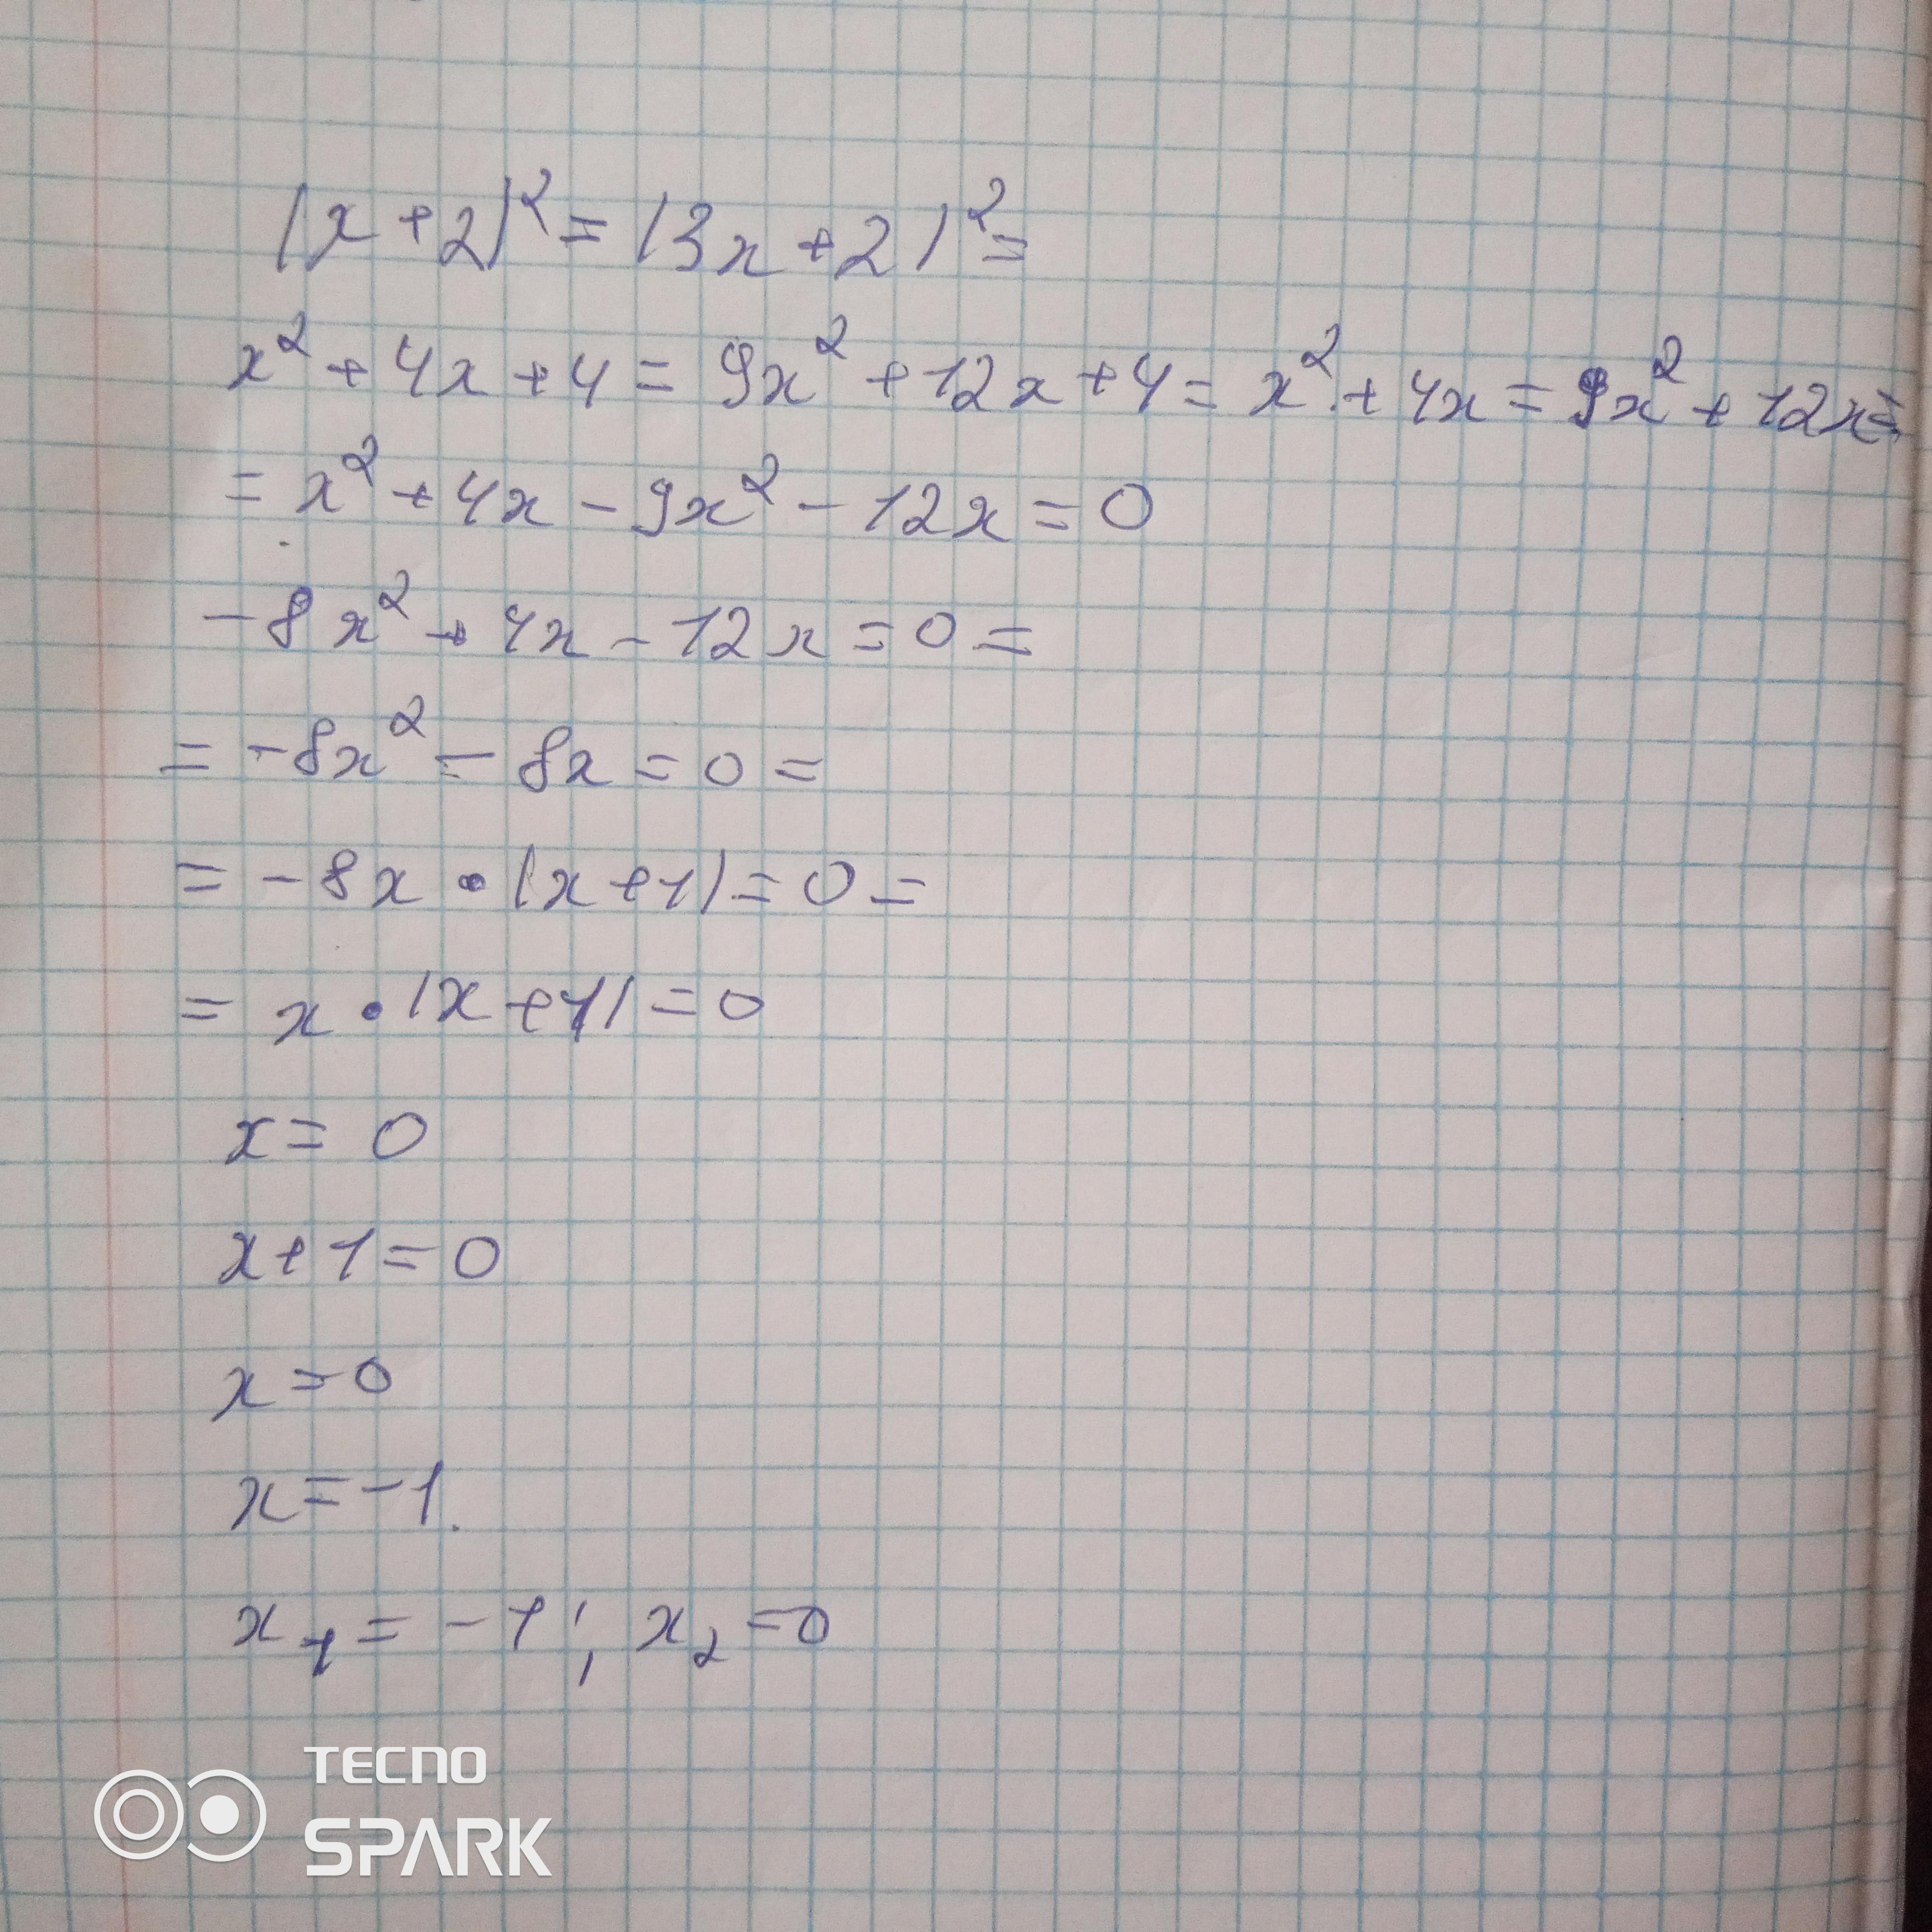 (x+2)²=(3x+2)²=
x²+4x+4=9x²+12x+4=x²+4x=9x²+12x=
=x²+4x-9x²-12x=0
-8x²+4x-12x=0=
=-8x²-8x=0=
=-8x•(x+1)=0=
=x•(x+1)=0
x=0
x+1=0
x=0
x=-1.
x₁=-1; x₂=0
TECNO
SPARK